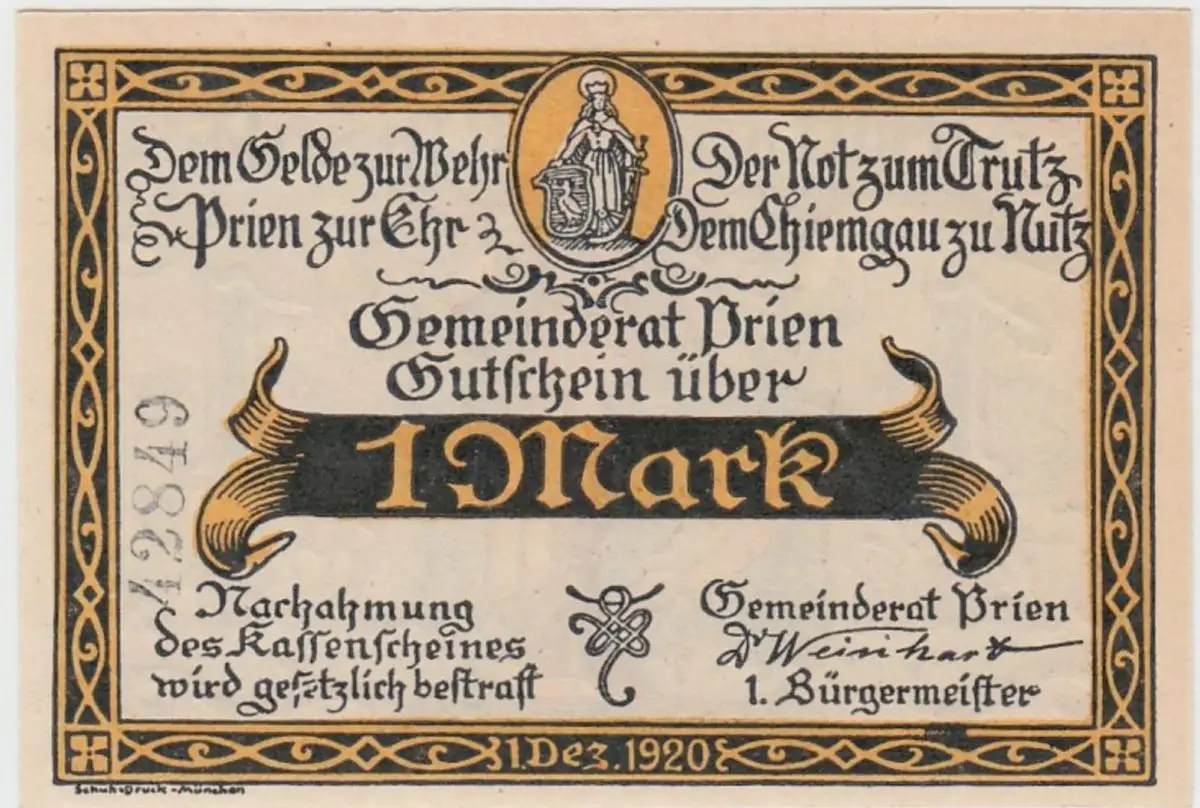 Dem Gelde zur Wehr
Prien zur Ehr
Der Not zum Trutz
Dem Chiemgau zu Nutz
Gemeinderat Prien
Gutschein über
1 Mark
42849
Nachahmung
des Kassenscheines
wird gesetzlich bestraft
Gemeinderat Prien
Dr Weinhart
1. Bürgermeister
1. Dez. 1920
Schuh-Druck-München